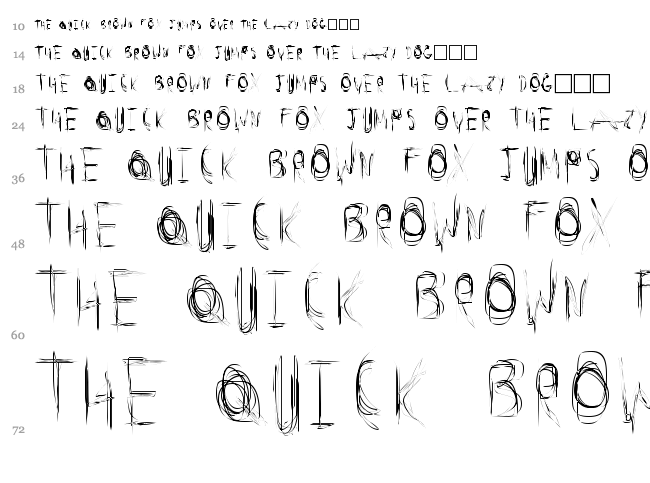 10 THE QUICK BROWN FOX JUMPS OVER THE LAZY DOG□□□
14 THE QUICK BROWN FOX JUMPS OVER THE LAZY DOG□□□
18 THE QUICK BROWN FOX JUMPS OVER THE LAZY DOG□□□
24 THE QUICK BROWN FOX JUMPS OVER THE LAZY
36 THE QUICK BROWN FOX JUMPS O
48 THE QUICK BROWN FOX
60 THE QUICK BROWN F
72 THE QUICK BROW